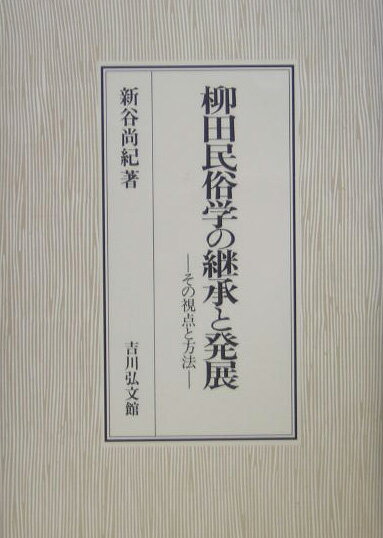 柳田民俗学の継承と発展
―その視点と方法―
新谷尚紀著
吉川弘文館